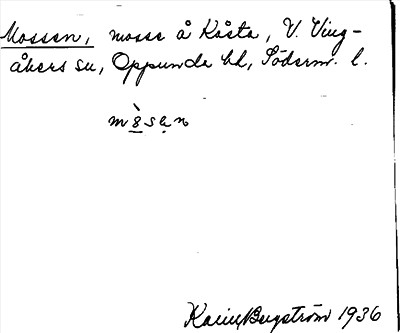 Mossen, mosse å Kåsta, V. Ving-
åkers sn, Oppunda hd, Söderm. l.
mòsen
Karin Bergström 1936